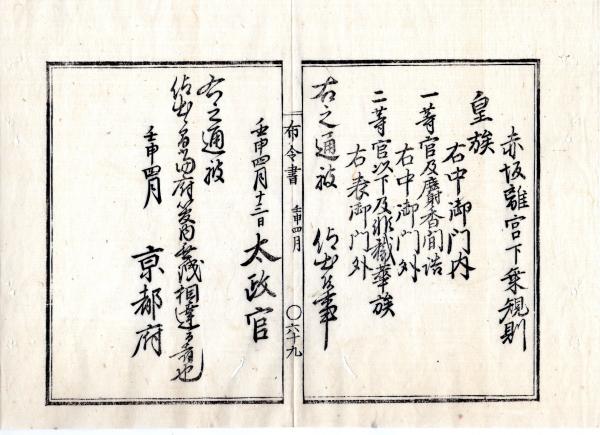 赤坂離宮下乗規則
皇族
右中御門内
一等官及麝香間詰
右中御門外
二等官以下及非職華族
右表御門外
右之通被 仰出候事
布令書 壬申四月 〇六十九
壬申四月十三日 太政官
右之通被
仰出候旨当府管内無洩相達する者也
壬申四月 京都府